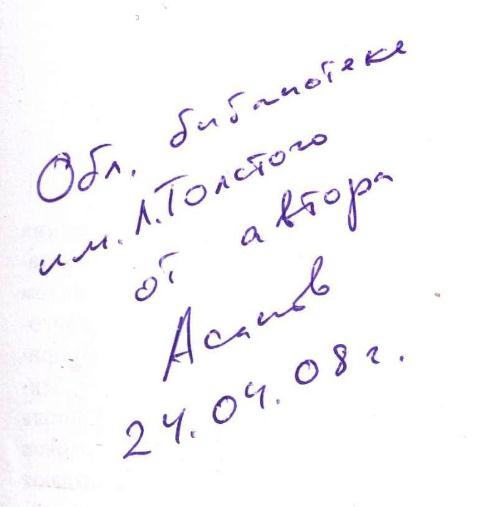 Обл. библиотеке
им. Л.Толстого
от автора
24.04.08 г.